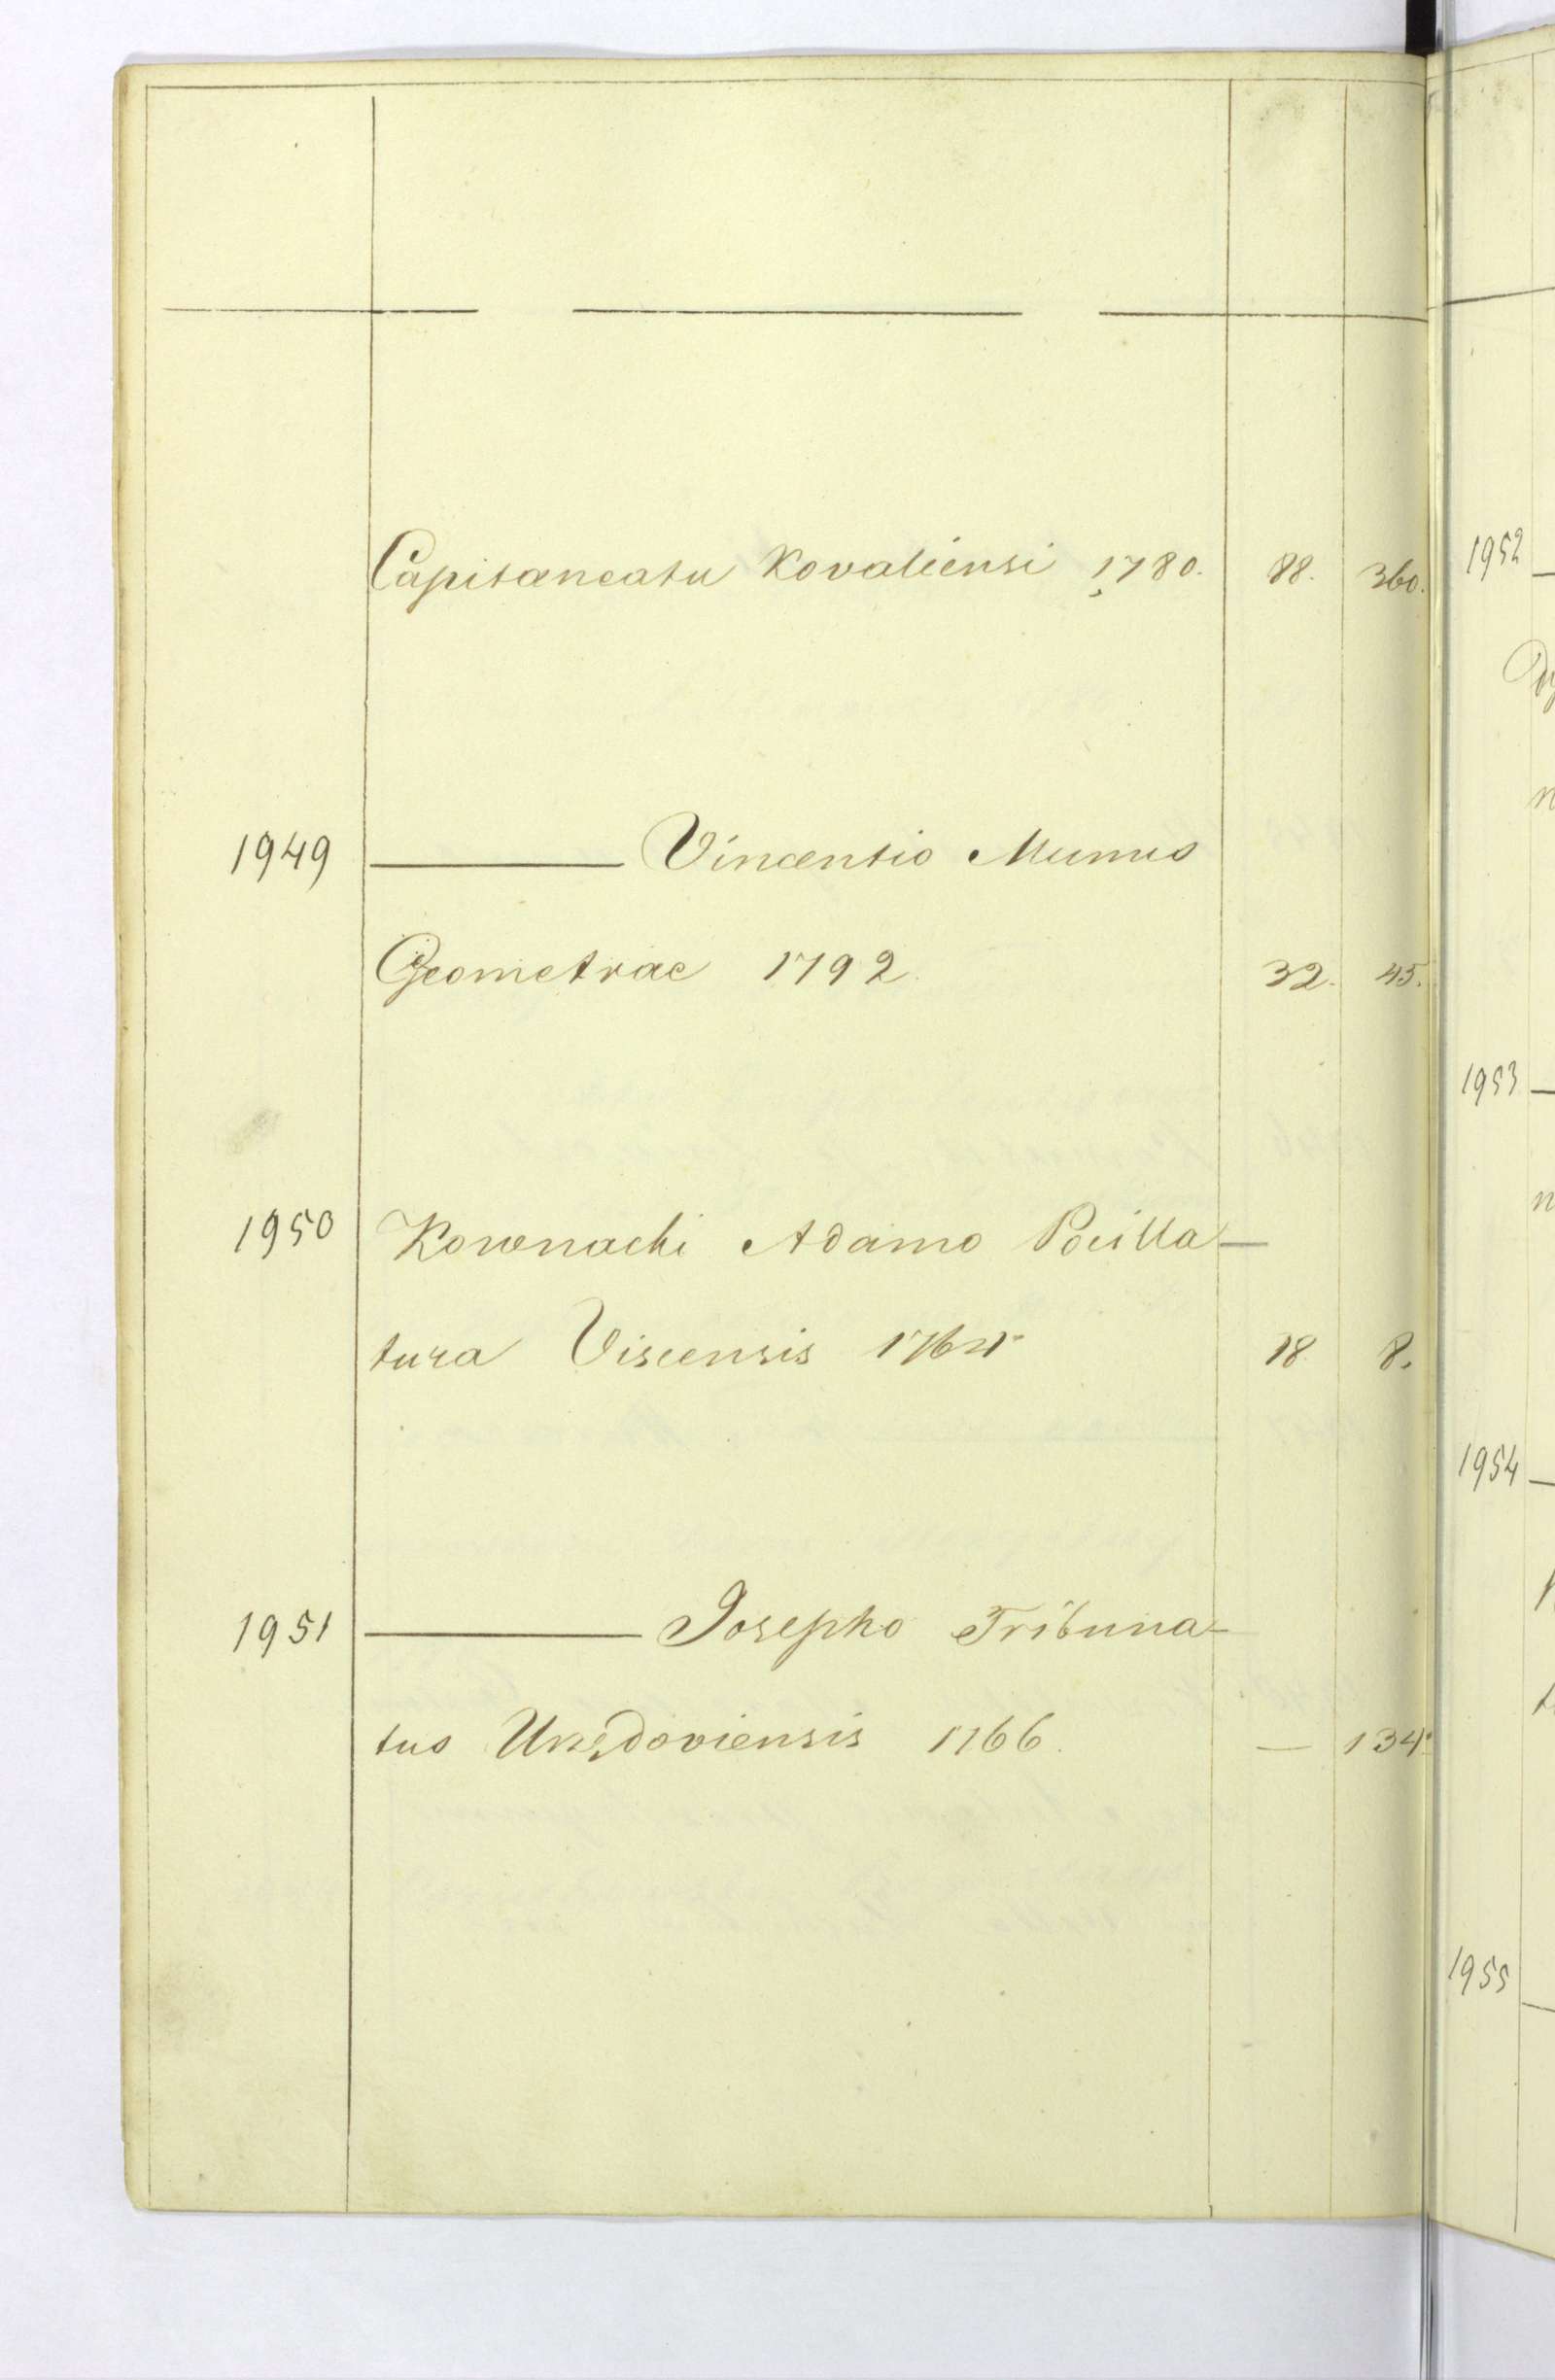 Capitaneatu Kovaliensi 1780. 88. 360.
1949 — Vincentio Munus
Geometrae 1792. 32. 45.
1950 Kownacki Adamo Pocilla-
tura Viscensis 1764 18. 8.
1951 — Josepho Tribuna-
tus 1766. — 134.
1952
1953
1954
1955